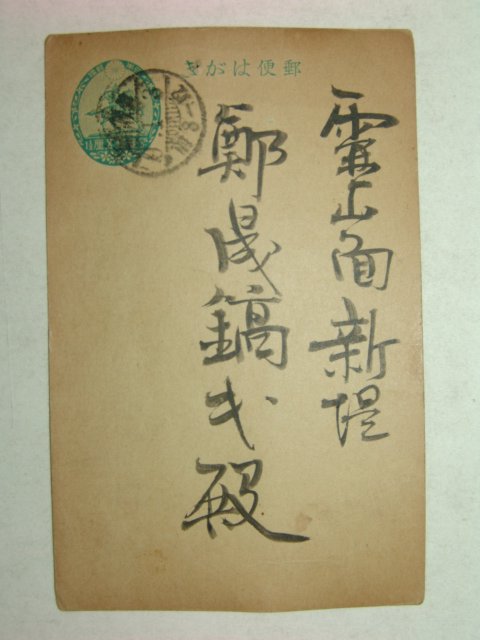 郵便はがき
霊山面新堤
鄭晟鎬氏殿